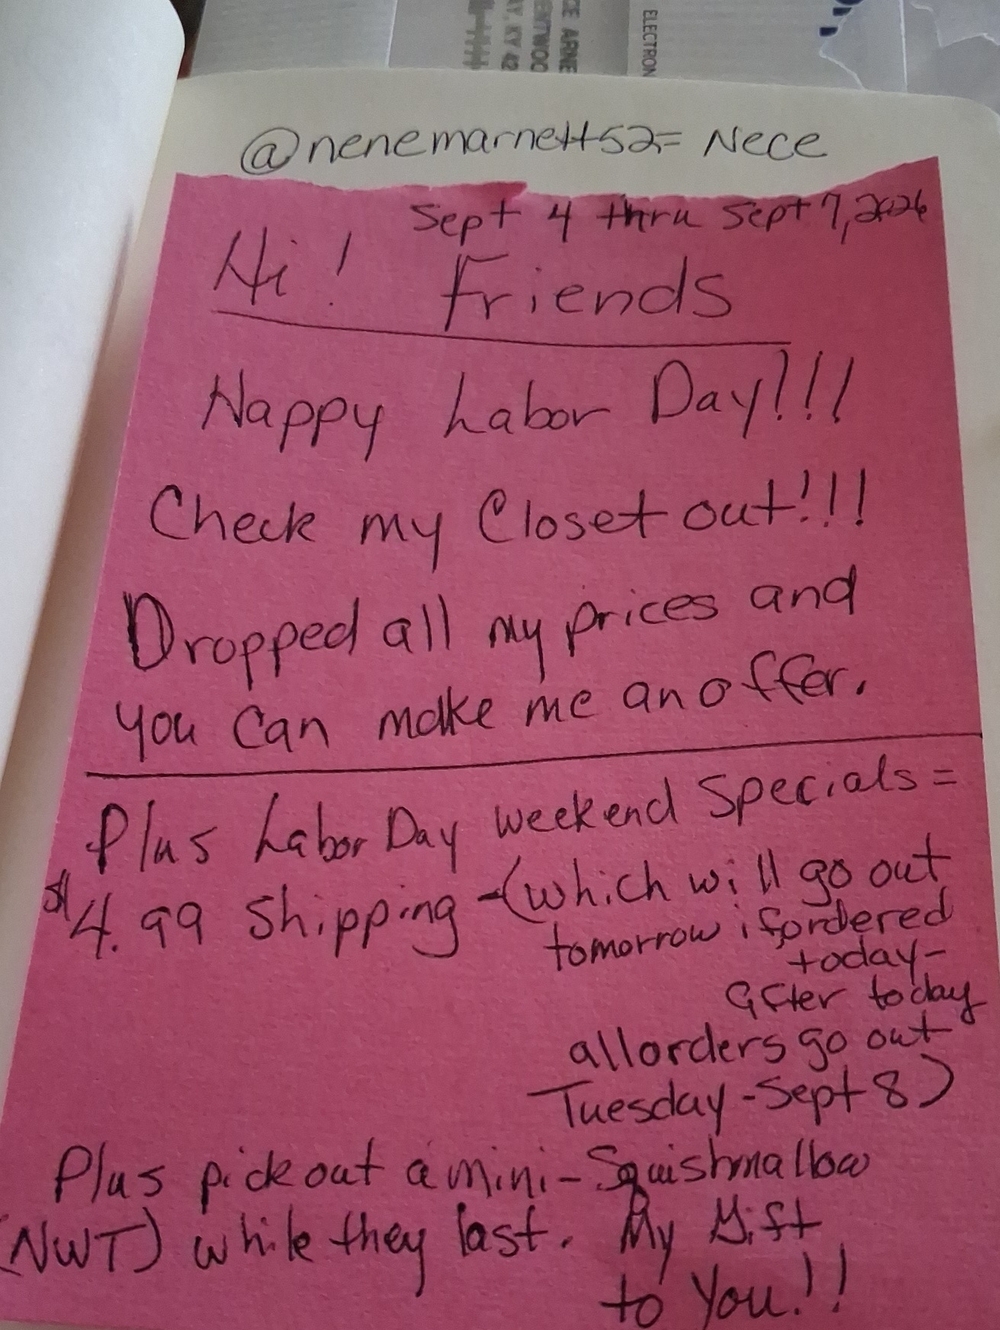 ELECTRON
AY, KY 42
@nenemarnett52= Nece
Sept 4 thru Sept 7, 2026
Hi! Friends
Happy Labor Day!!!
Check my Closet out!!!
Dropped all my prices and
you can make me an offer.
Plus Labor Day weekend Specials=
$4.99 Shipping-(which will go out
tomorrow if ordered
today-
after today
all orders go out
Tuesday-Sept 8)
Plus pick out a mini-Squishmallow
(NWT) while they last. My Gift
to You!!